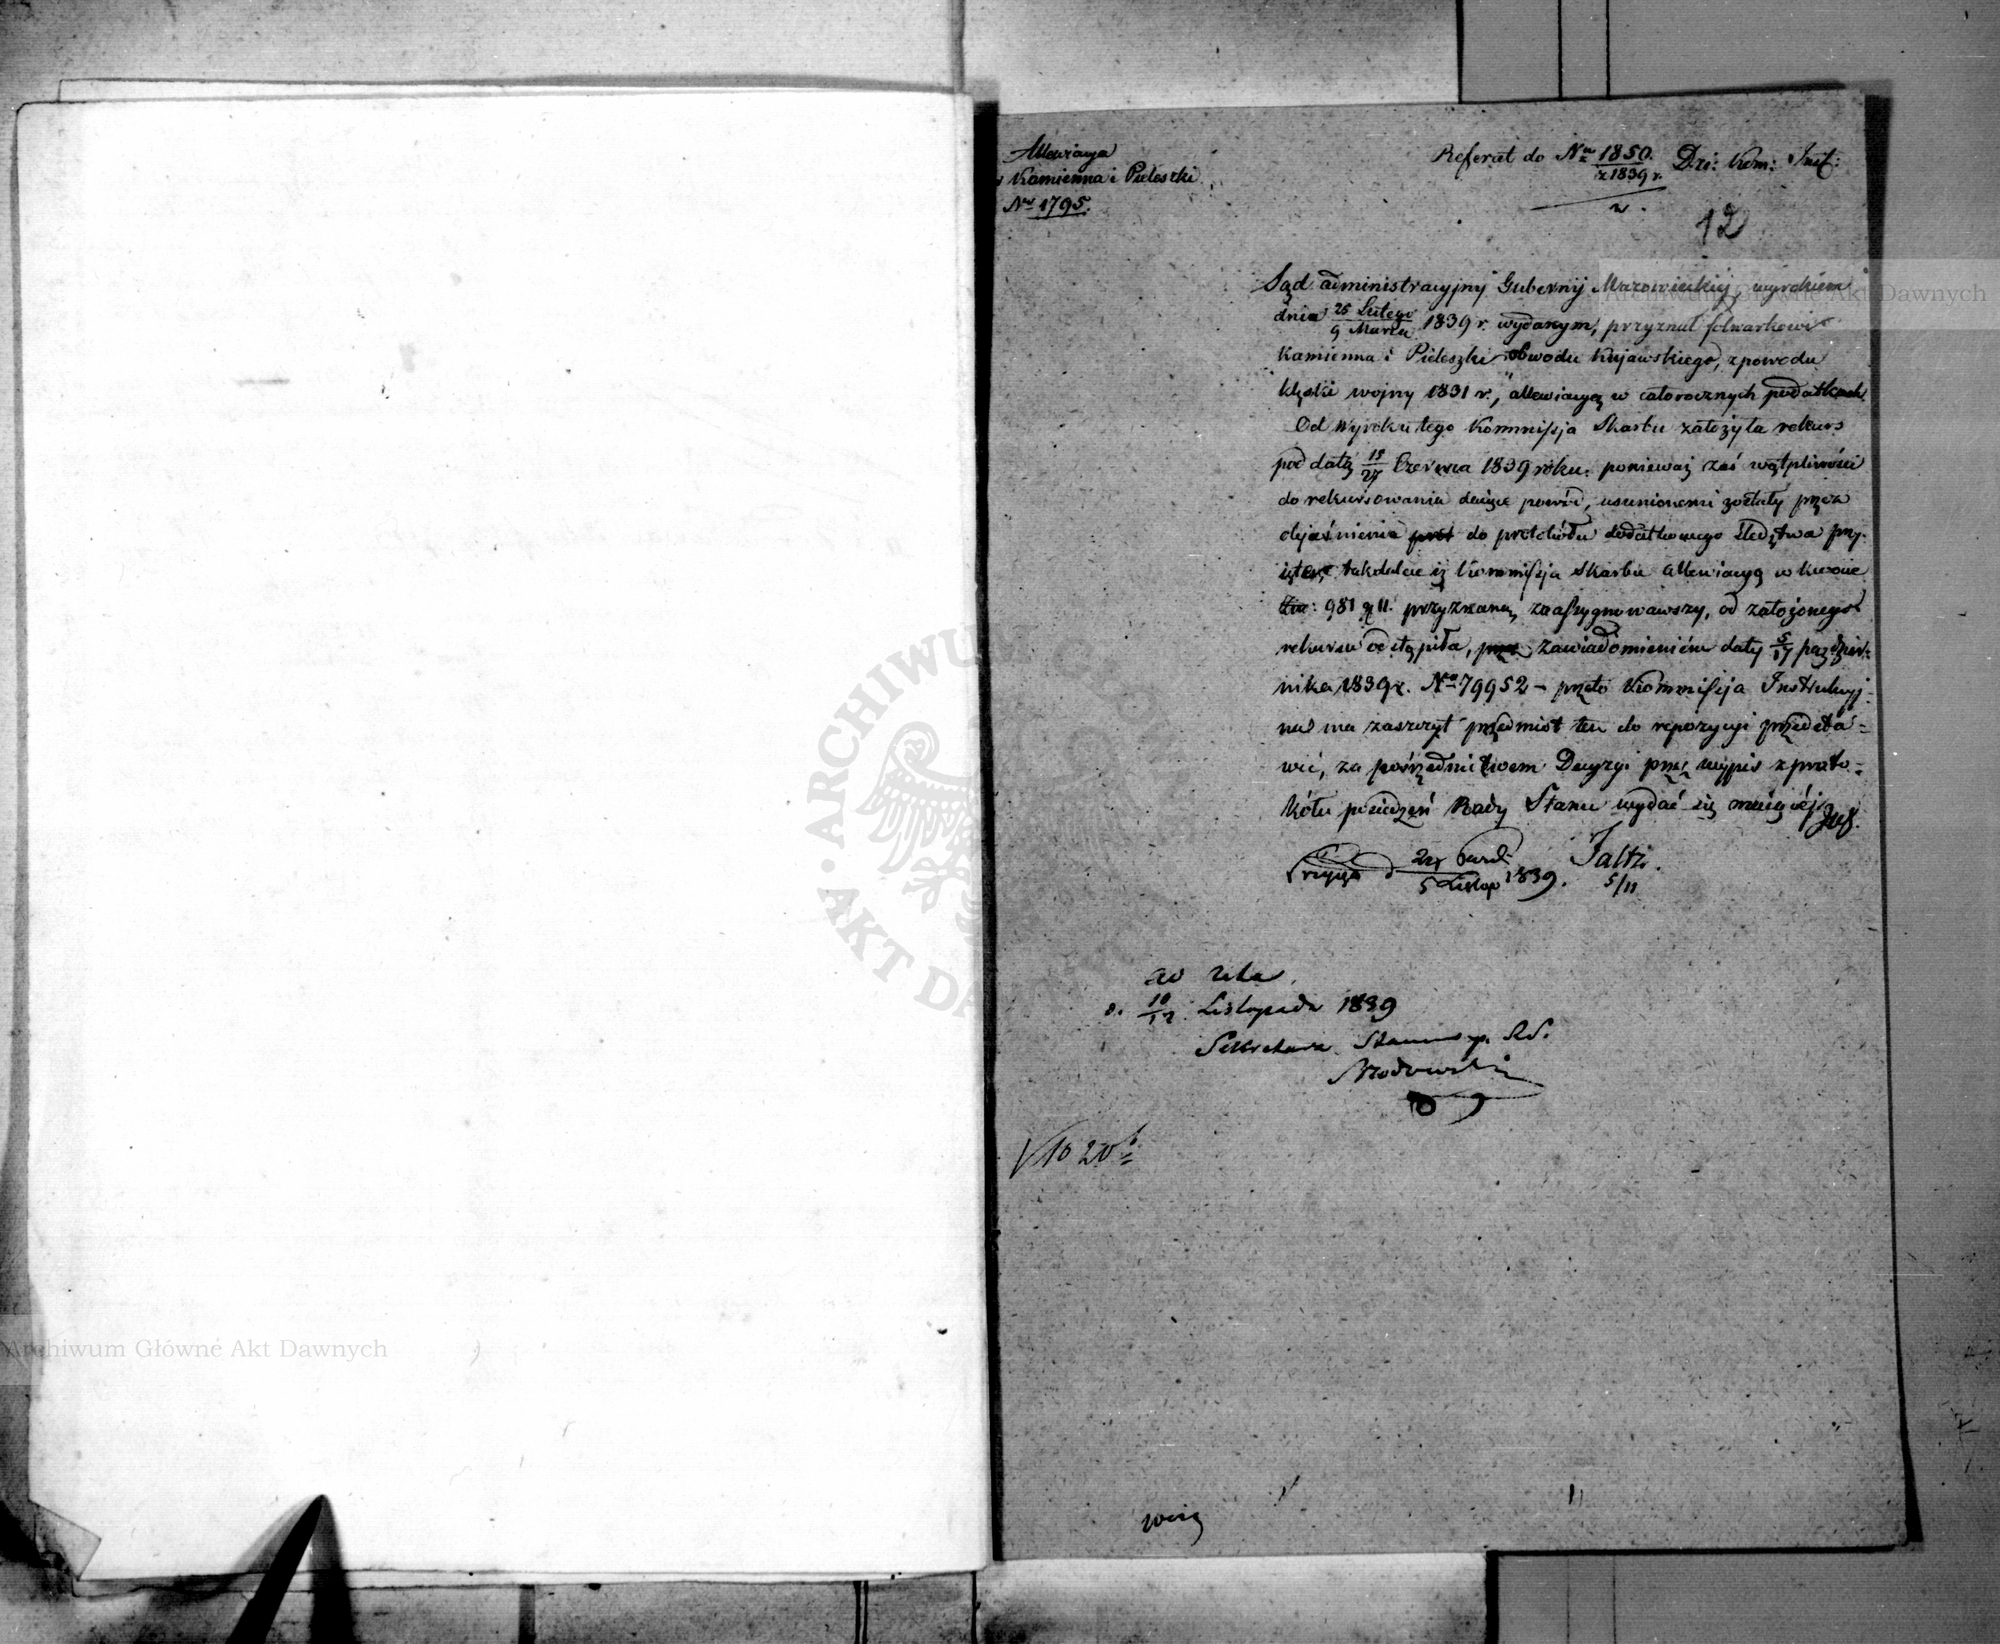 Allewiacya
Kamienna i Pieleszki
Nr 1795.
Referat do Nru 1850. Dzi: Kom: Inst:
z 1839 r.
12
Sąd administracyjny Gubernij Mazowieckiej, wyrokiem
dnia 25 Lutego / 9 Marca 1839 r. wydanym, przyznał folwarkowi
Kamienna i Pieleszki obwodu Kujawskiego, z powodu
klęski wojny 1831 r., allewiacyą w całorocznych podatkach.
Od wyroku tego Kommissja Skarbu założyła rekurs
pod datą 15/27 Czerwca 1839 roku. ponieważ zaś wątpliwości
do rekursowania dające powód, usunionemi zostały przez
objaśnienia do protokółu dodatkowego śledztwa przy-
jęte, tak dalece iż Kommissja Skarbu allewiacyą w kwocie
Złп: 981 g 11. przyznaną zaassygnowawszy, od założonego
rekursu odstąpiła, zawiadomieniem daty 5/17 paździer-
nika 1839 r. No 79952 – przeto Kommissja Instrukcyj-
na ma zaszczyt przedmiot ten do repozycyi przedsta-
wić, za pośrednictwem Decyzyi przez wypis z proto-
kółu posiedzeń Rady Stanu wydać się mającéj
24 Paźdz. / 5 Listop 1839.
5/11
ad acta
d. 10 Listopada 1839
Sekretarz Stanu
Brodowski
Archiwum Główne Akt Dawnych
ARCHIWUM GŁÓWNE AKT DAWNYCH
Archiwum Główne Akt Dawnych